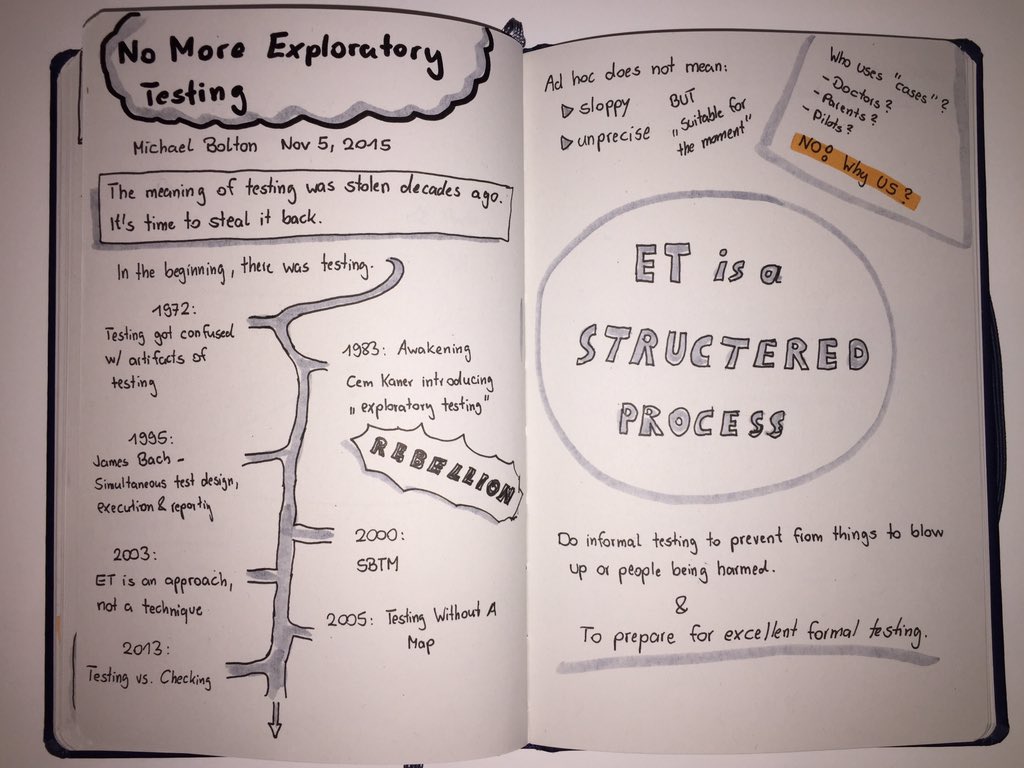 No More Exploratory
Testing
Michael Bolton Nov 5, 2015
The meaning of testing was stolen decades ago.
It's time to steal it back.
In the beginning, there was testing.
1972:
Testing got confused
w/ artifacts of
testing
1983: Awakening
Cem Kaner introducing
„exploratory testing"
REBELLION
1995:
James Bach -
Simultaneous test design,
execution & reporting
2000:
SBTM
2003:
ET is an approach,
not a technique
2005: Testing Without A
Map
2013:
Testing vs. Checking
Ad hoc does not mean:
▷ sloppy
▷ unprecise
BUT
„Suitable for
the moment"
Who uses "cases"?
- Doctors?
- Parents?
- Pilots?
NO! Why US?
ET is a
STRUCTERED
PROCESS
Do informal testing to prevent from things to blow
up or people being harmed.
&
To prepare for excellent formal testing.